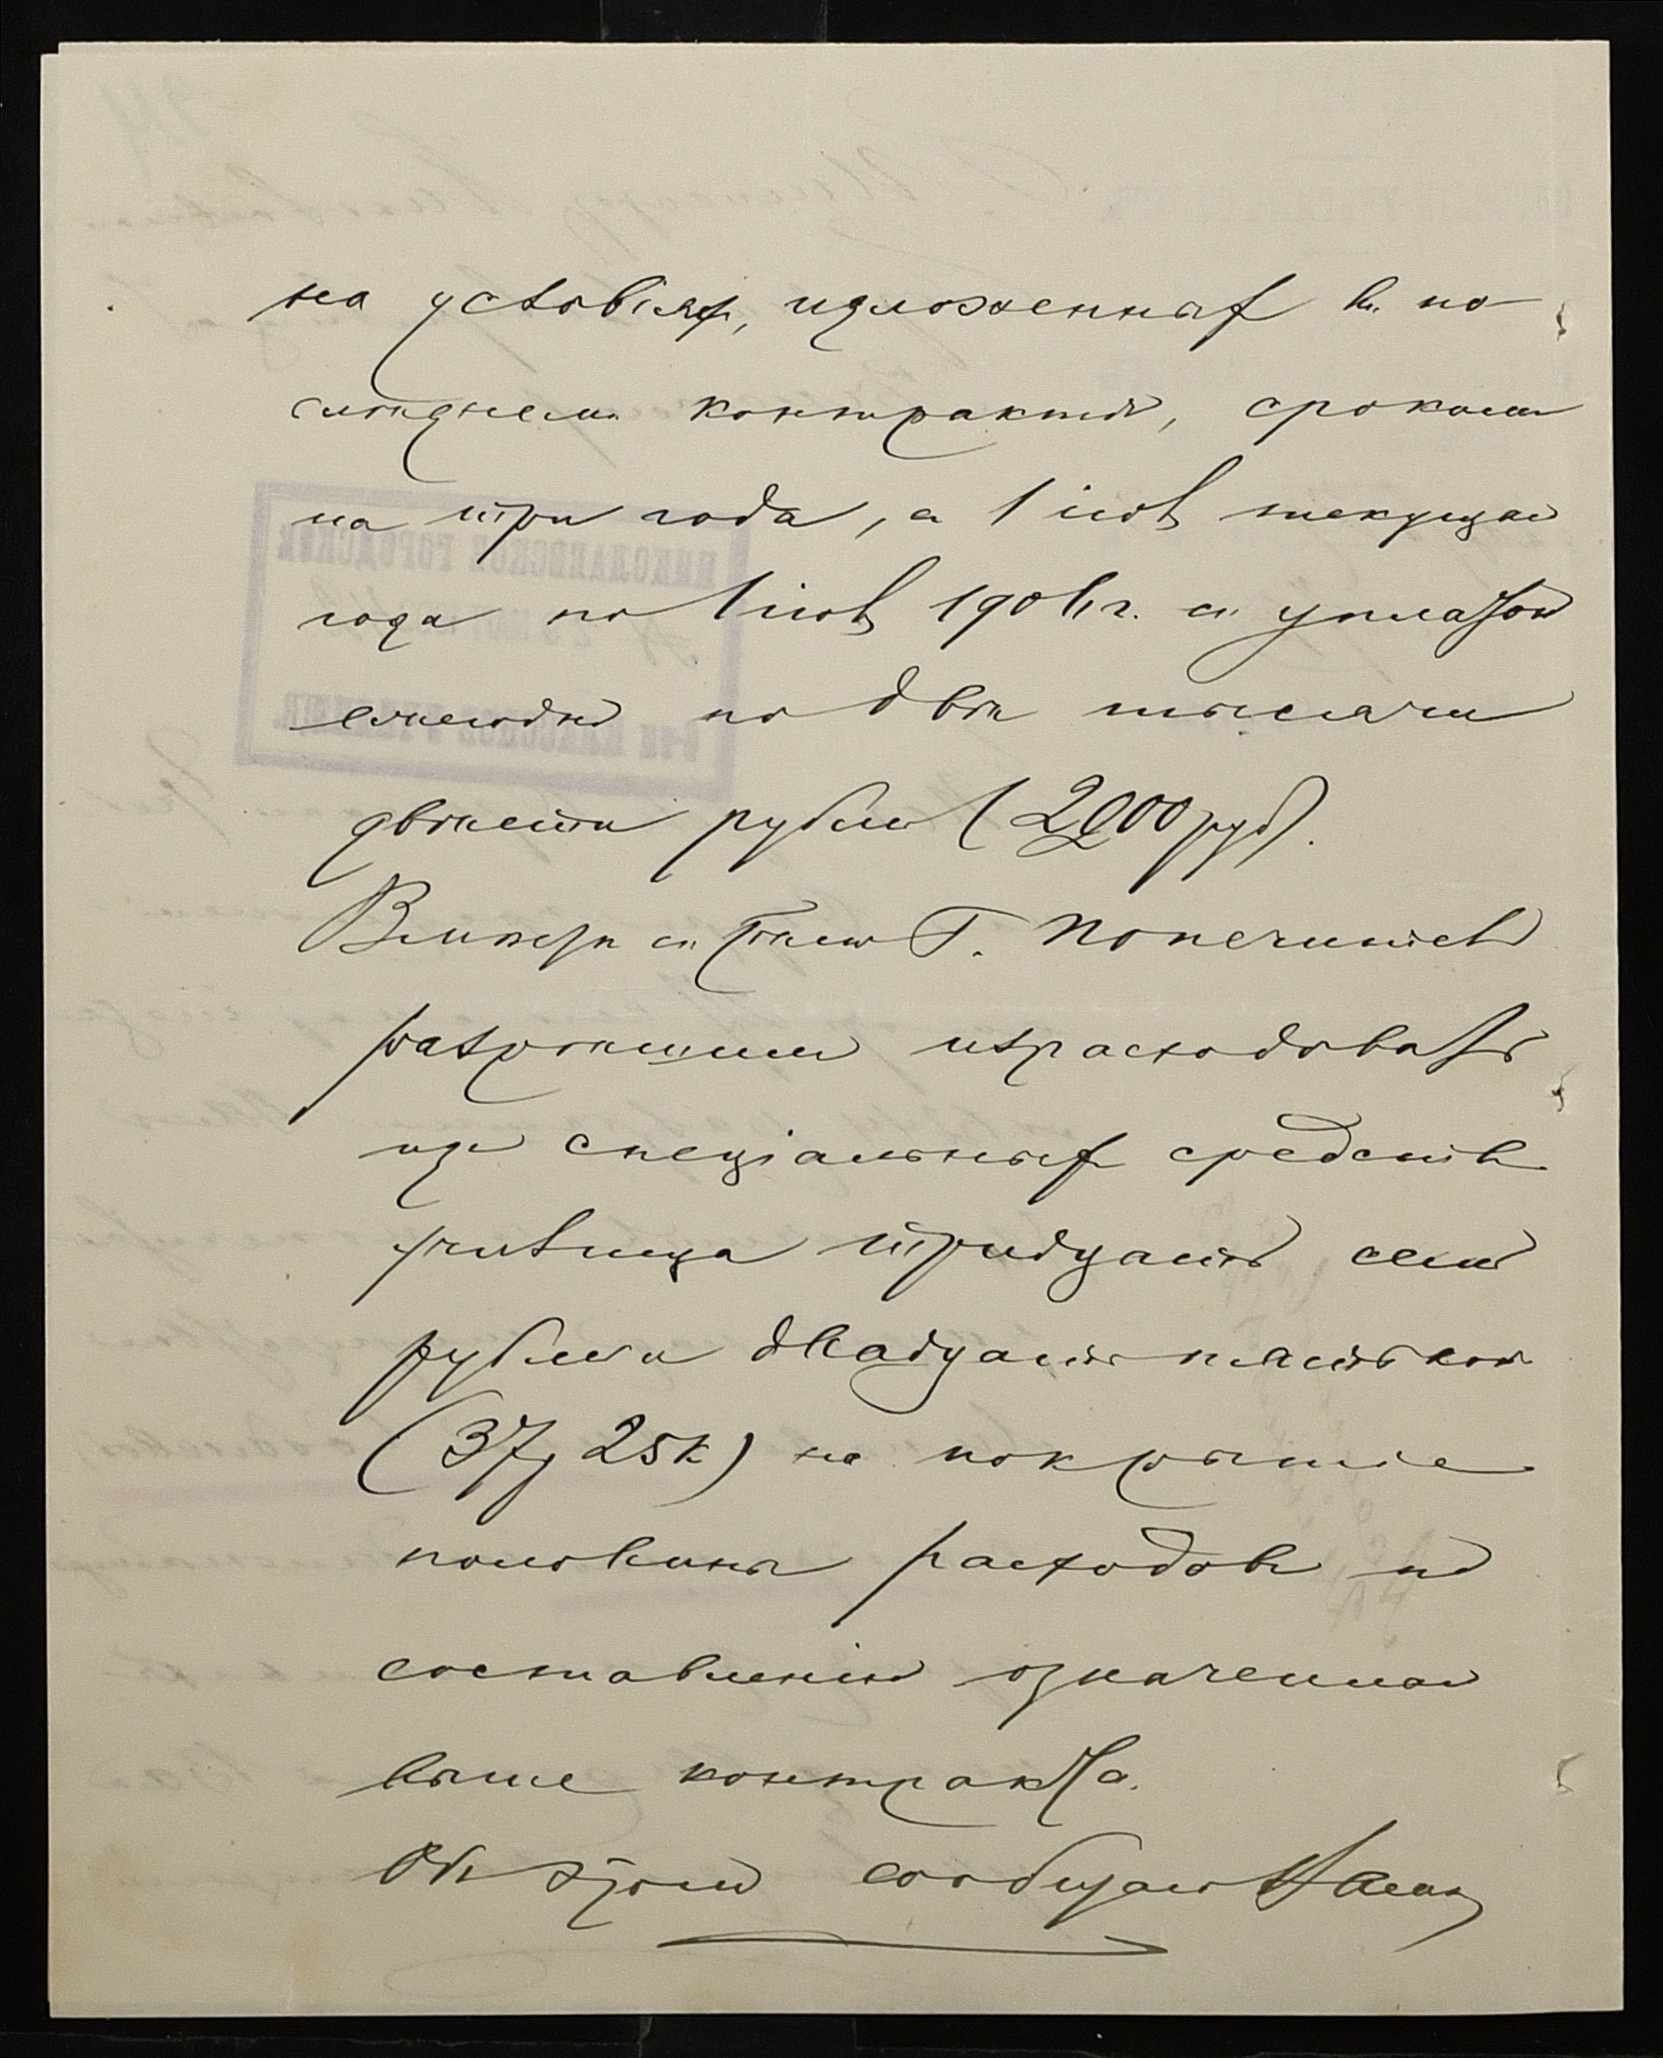 на условіяхъ, изложенныхъ въ по-
слѣднемъ контрактѣ, срокомъ
на три года, съ 1 іюля текущаго
года по 1 іюля 1906 г. съ уплатою
ежегодно по двѣ тысячи
двѣсти рублей (2200 руб).
Вмѣстѣ съ тѣмъ Г. Попечитель
разрѣшилъ израсходовать
изъ спеціальныхъ средствъ
училища тридцать семь
рублей двадцать пять коп
(37 р 25 к) на покрытіе
половины расходовъ по
составленію означеннаго
выше контракта.
Объ этомъ сообщаю Вамъ